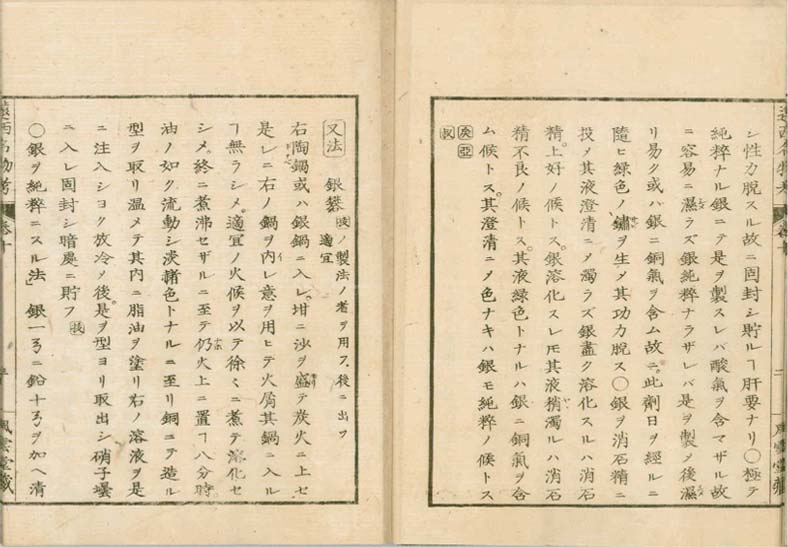 シ性力脱スル故ニ固封シ貯ルヿ肝要ナリ〇極テ
純粹ナル銀ニテ是ヲ製スレバ酸氣ヲ含マザル故
ニ容易ニ濕ラズ銀純粹ナラザレバ是ヲ製〆後濕
リ易ク或ハ銀ニ銅氣ヲ含ム故ニ。此劑日ヲ經ルニ
隨ヒ綠色ノ鏽ヲ生〆其功力脱ス〇銀ヲ消石精ニ
投〆其液澄清ニ〆濁ラズ銀盡ク溶化スルハ消石
精。上好ノ候トス。銀溶化スレ𪜈其液稍濁ルハ消石
精不良ノ候トス。其液綠色トナルハ銀ニ銅氣ヲ含
ム候トス。其澄清ニ〆色ナキハ銀モ純粹ノ候トス
遠西名物考 卷十 五 風雲堂藏
又法 銀 ノ製法ノ者ヲ用フ、後ニ出ツ 適宜
右陶鍋或ハ銀鍋ニ入レ。坩ニ沙ヲ盛テ炭火ニ上セ
是レニ右ノ鍋ヲ内レ意ヲ用ヒテ火屑其鍋ニ入ル
ヿ無ラシメ。適宜ノ火候ヲ以テ徐々ニ煮テ溶化セ
シメ。終ニ煮沸セザルニ至テ仍火上ニ置ヿ八分時。
油ノ如ク流動シ淡赭色トナルニ至リ銅ニテ造ル
型ヲ取リ温メテ其内ニ脂油ヲ塗リ右ノ溶液ヲ是
ニ注入シヨク放冷〆後。是ヲ型ヨリ取出シ硝子罎
ニ入レ固封シ暗處ニ貯フ
〇銀ヲ純粹ニスル法」 銀一ニ鉛十ヲ加ヘ清